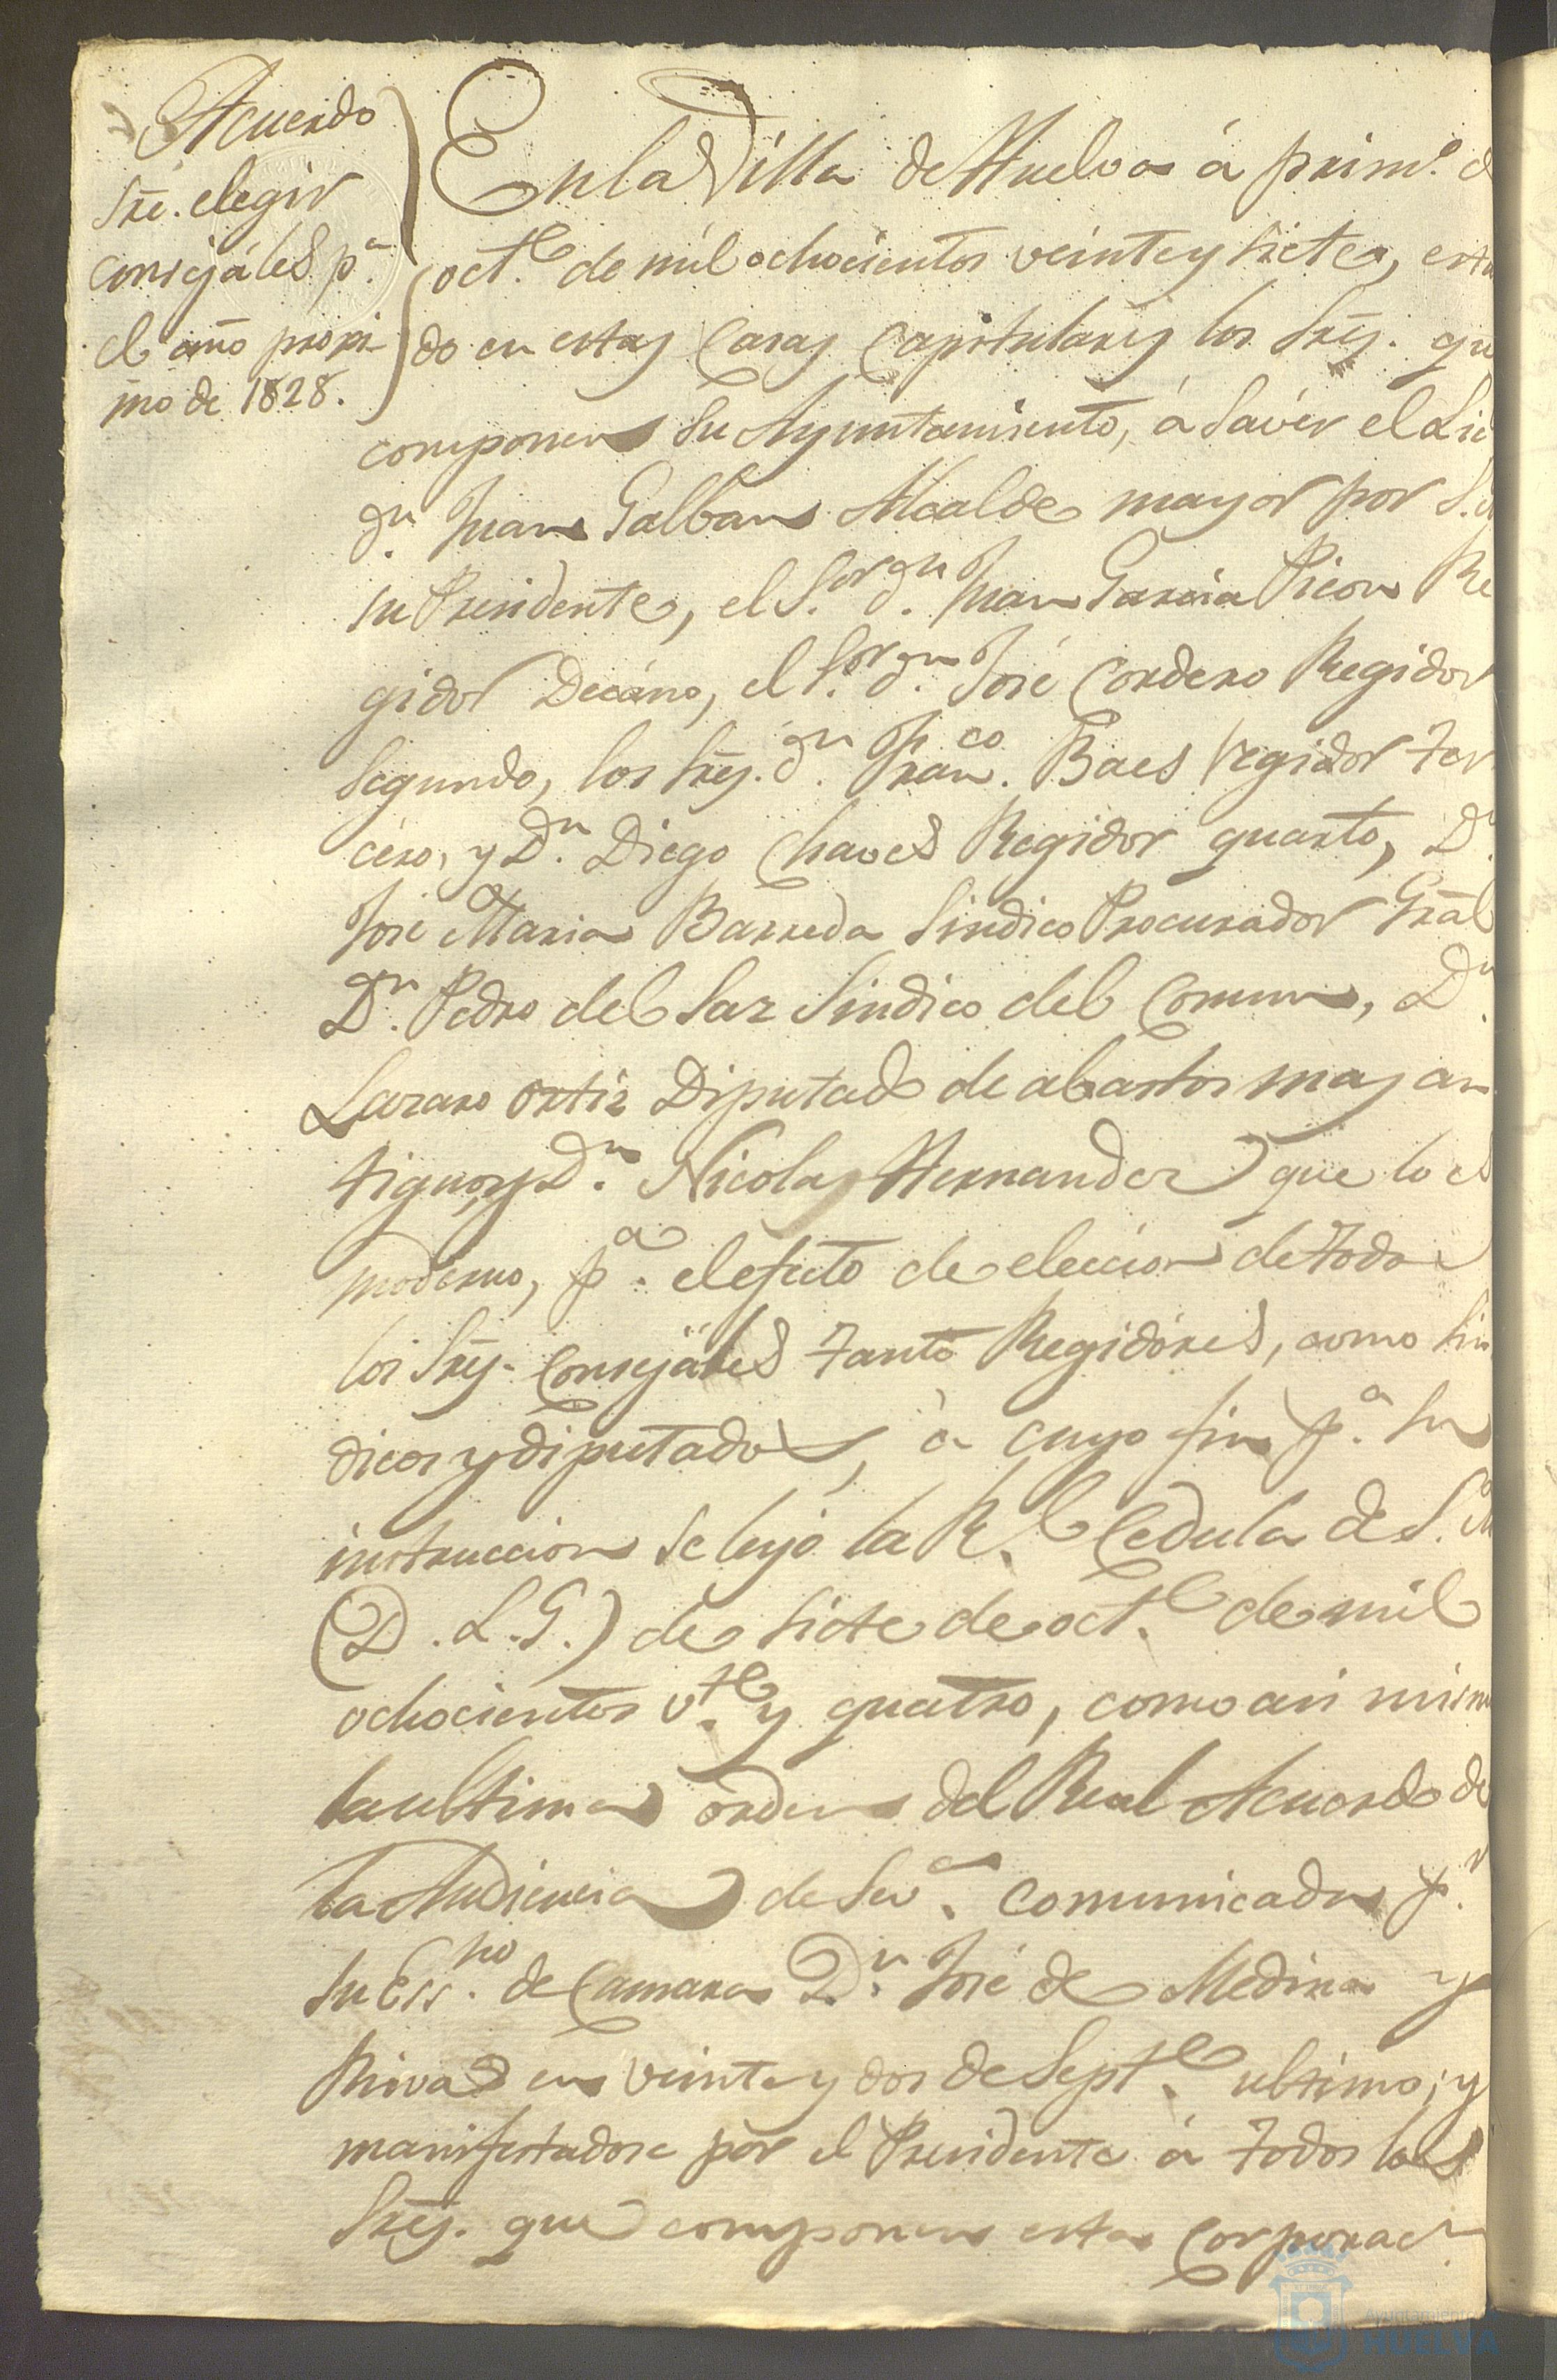 Acuerdo
sre. elegir
consejáles p.a
el año proxi-
mo de 1828.
En la Villa de Huelva á prim.o d
oct.e de mil ochocientos veinte y siete, esta
do en estas Casas Capitulares los Sres. qu
componen su Ayuntamiento, á savér el Lic
dn. Juan Galban Alcalde mayor por S.
su Presidente, el S.or dn. Juan Garcia Picon Re
gidor Decáno, el S.or dn. José Cordero Regidor
segundo, los Sres. dn. Fran.co Baes regidor ter
céro, y Dn. Diego Chaves Regidor quarto, Dn.
José Maria Barreda Sindico Procurador Gral
Dn. Pedro del Saz Sindico del Comun, Dn.
Lazaro Ortiz Diputado de abastos mas an
tiguo, y Dn. Nicolas Hernandez que lo es
moderno, p.a el efecto de eleccion de todo
los Sres. Consejáles tanto Regidóres, como Sin
dicos y diputados, á cuyo fin p.a su
instruccion se leyó la R.l Cedula de S. M
(D. L. G.) de siete de oct.e de mil
ochocientos v.te y quatro, como asi mism
la ultima orden del Real Acuerdo de
la Audiencia de Sev.a comunicada p.r
su Ess.no de Camara Dn. José de Medina y
Rivas en veinte y dos de Sept.e ultimo; y
manifestadose por el Presidente á todos los
Sres. que componen esta Corporac.n
Ayuntamiento
HUELVA